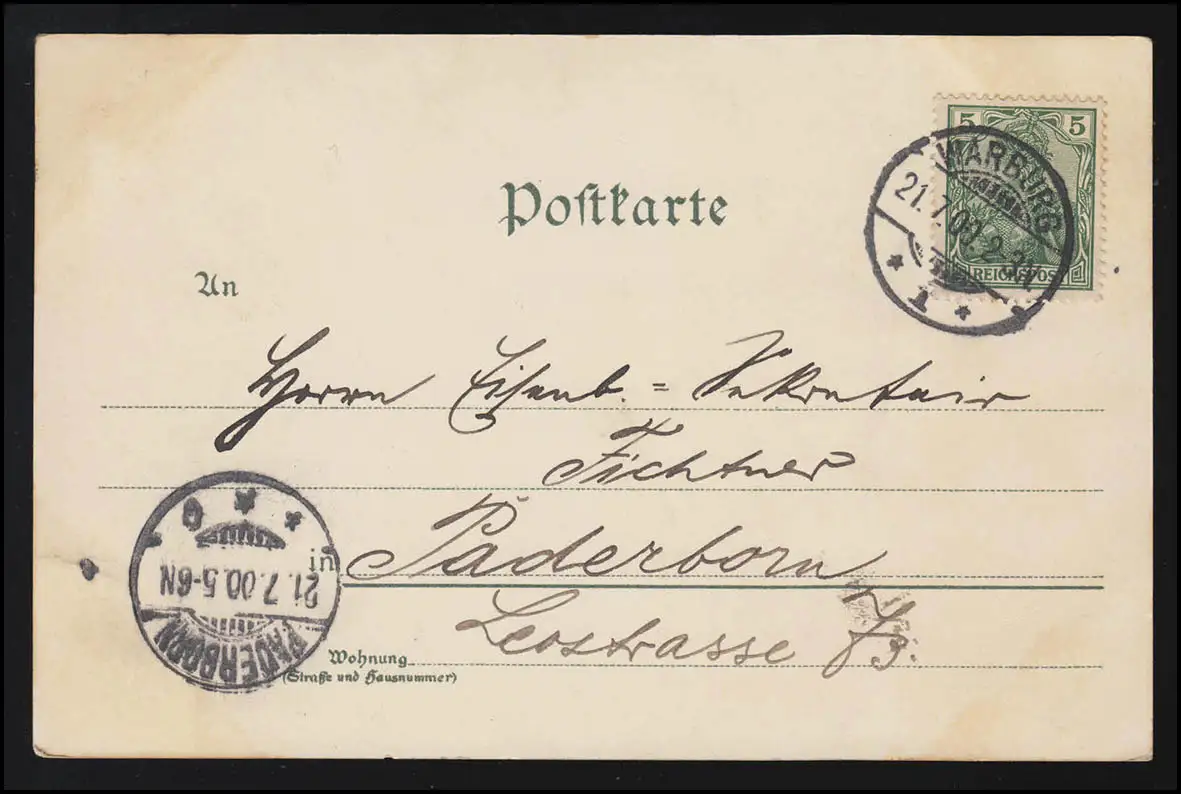 5 5
REICHSPOST
WARBURG
21.7.00. 2-3N.
* T *
Postkarte
An
Herrn Eisenb. = Sekretair
Fichtner
in Paderborn
Leostrasse
Wohnung
(Straße und Hausnummer)
PADERBORN
21.7.00.5-6N